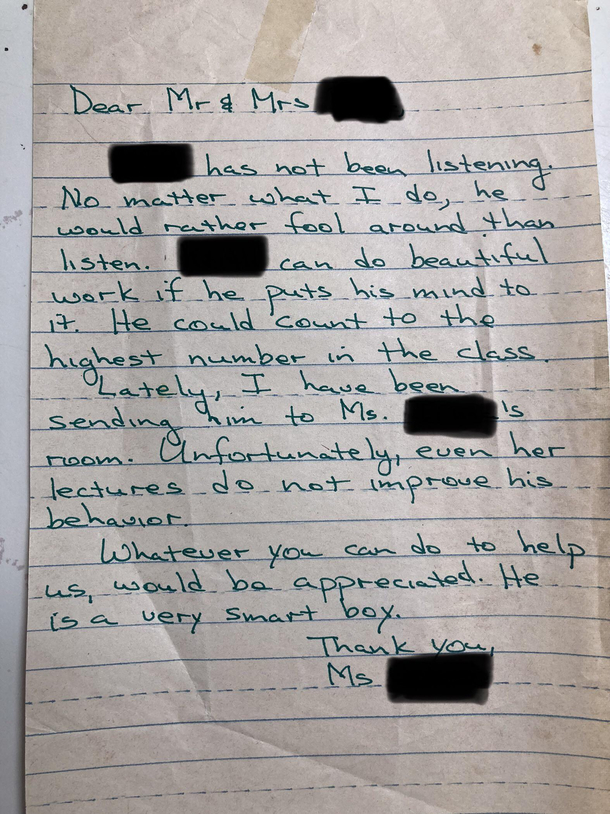 Dear Mr & Mrs
has not been listening.
No matter what I do, he
would rather fool around than
listen. can do beautiful
work if he puts his mind to
it. He could count to the
highest number in the class.
Lately, I have been
sending him to Ms. 's
room. Unfortunately, even her
lectures do not improve his
behavior.
Whatever you can do to help
us, would be appreciated. He
is a very smart boy.
Thank you,
Ms